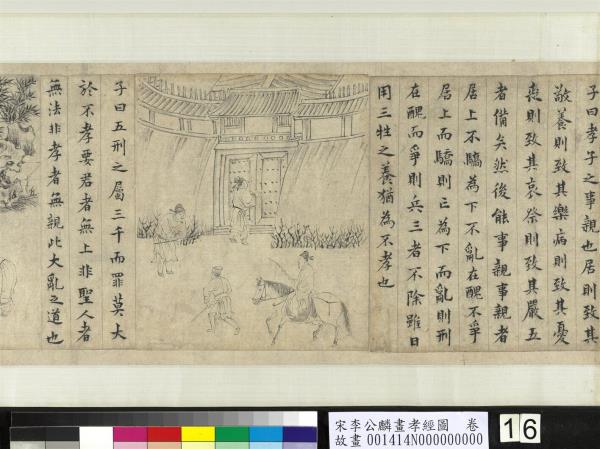 子曰孝子之事親也居則致其
敬養則致其樂病則致其憂
喪則致其哀祭則致其嚴五
者備矣然後能事親事親者
居上不驕為下不亂在醜不爭
居上而驕則亡為下而亂則刑
在醜而爭則兵三者不除雖日
用三牲之養猶為不孝也
子曰五刑之屬三千而罪莫大
於不孝要君者無上非聖人者
無法非孝者無親此大亂之道也
宋李公麟畫孝經圖 卷
故畫 001414N000000000
16